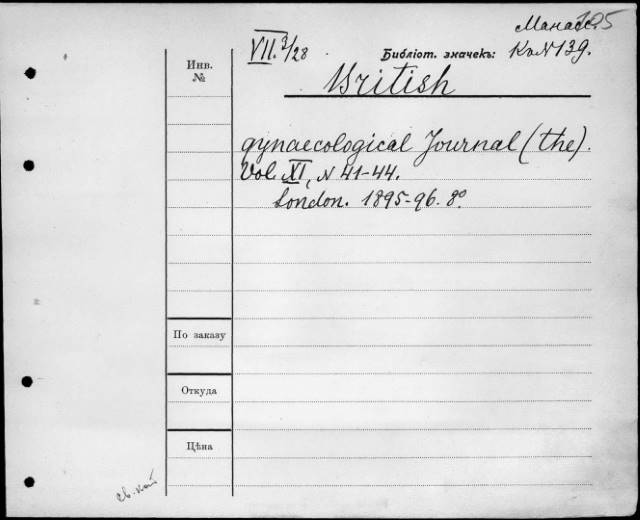 Манасс. 105
VII. 3/28 Библіот. значекъ: Кн N 139.
Инв.
№
British
gynaecological Journal (the).
Vol XI, N 41-44.
London. 1895-96. 8º
По заказу
Откуда
Цѣна